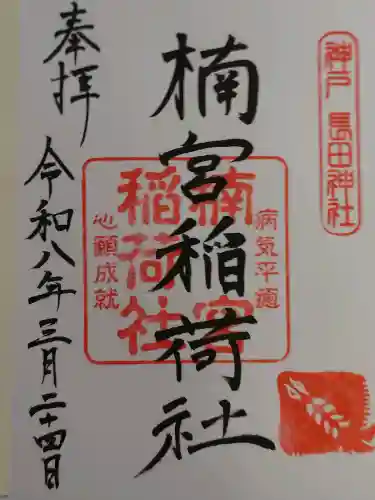 神戸 長田神社
楠宮稲荷社
病気平癒
楠宮
稲荷社
心願成就
奉拝
令和八年三月二十四日